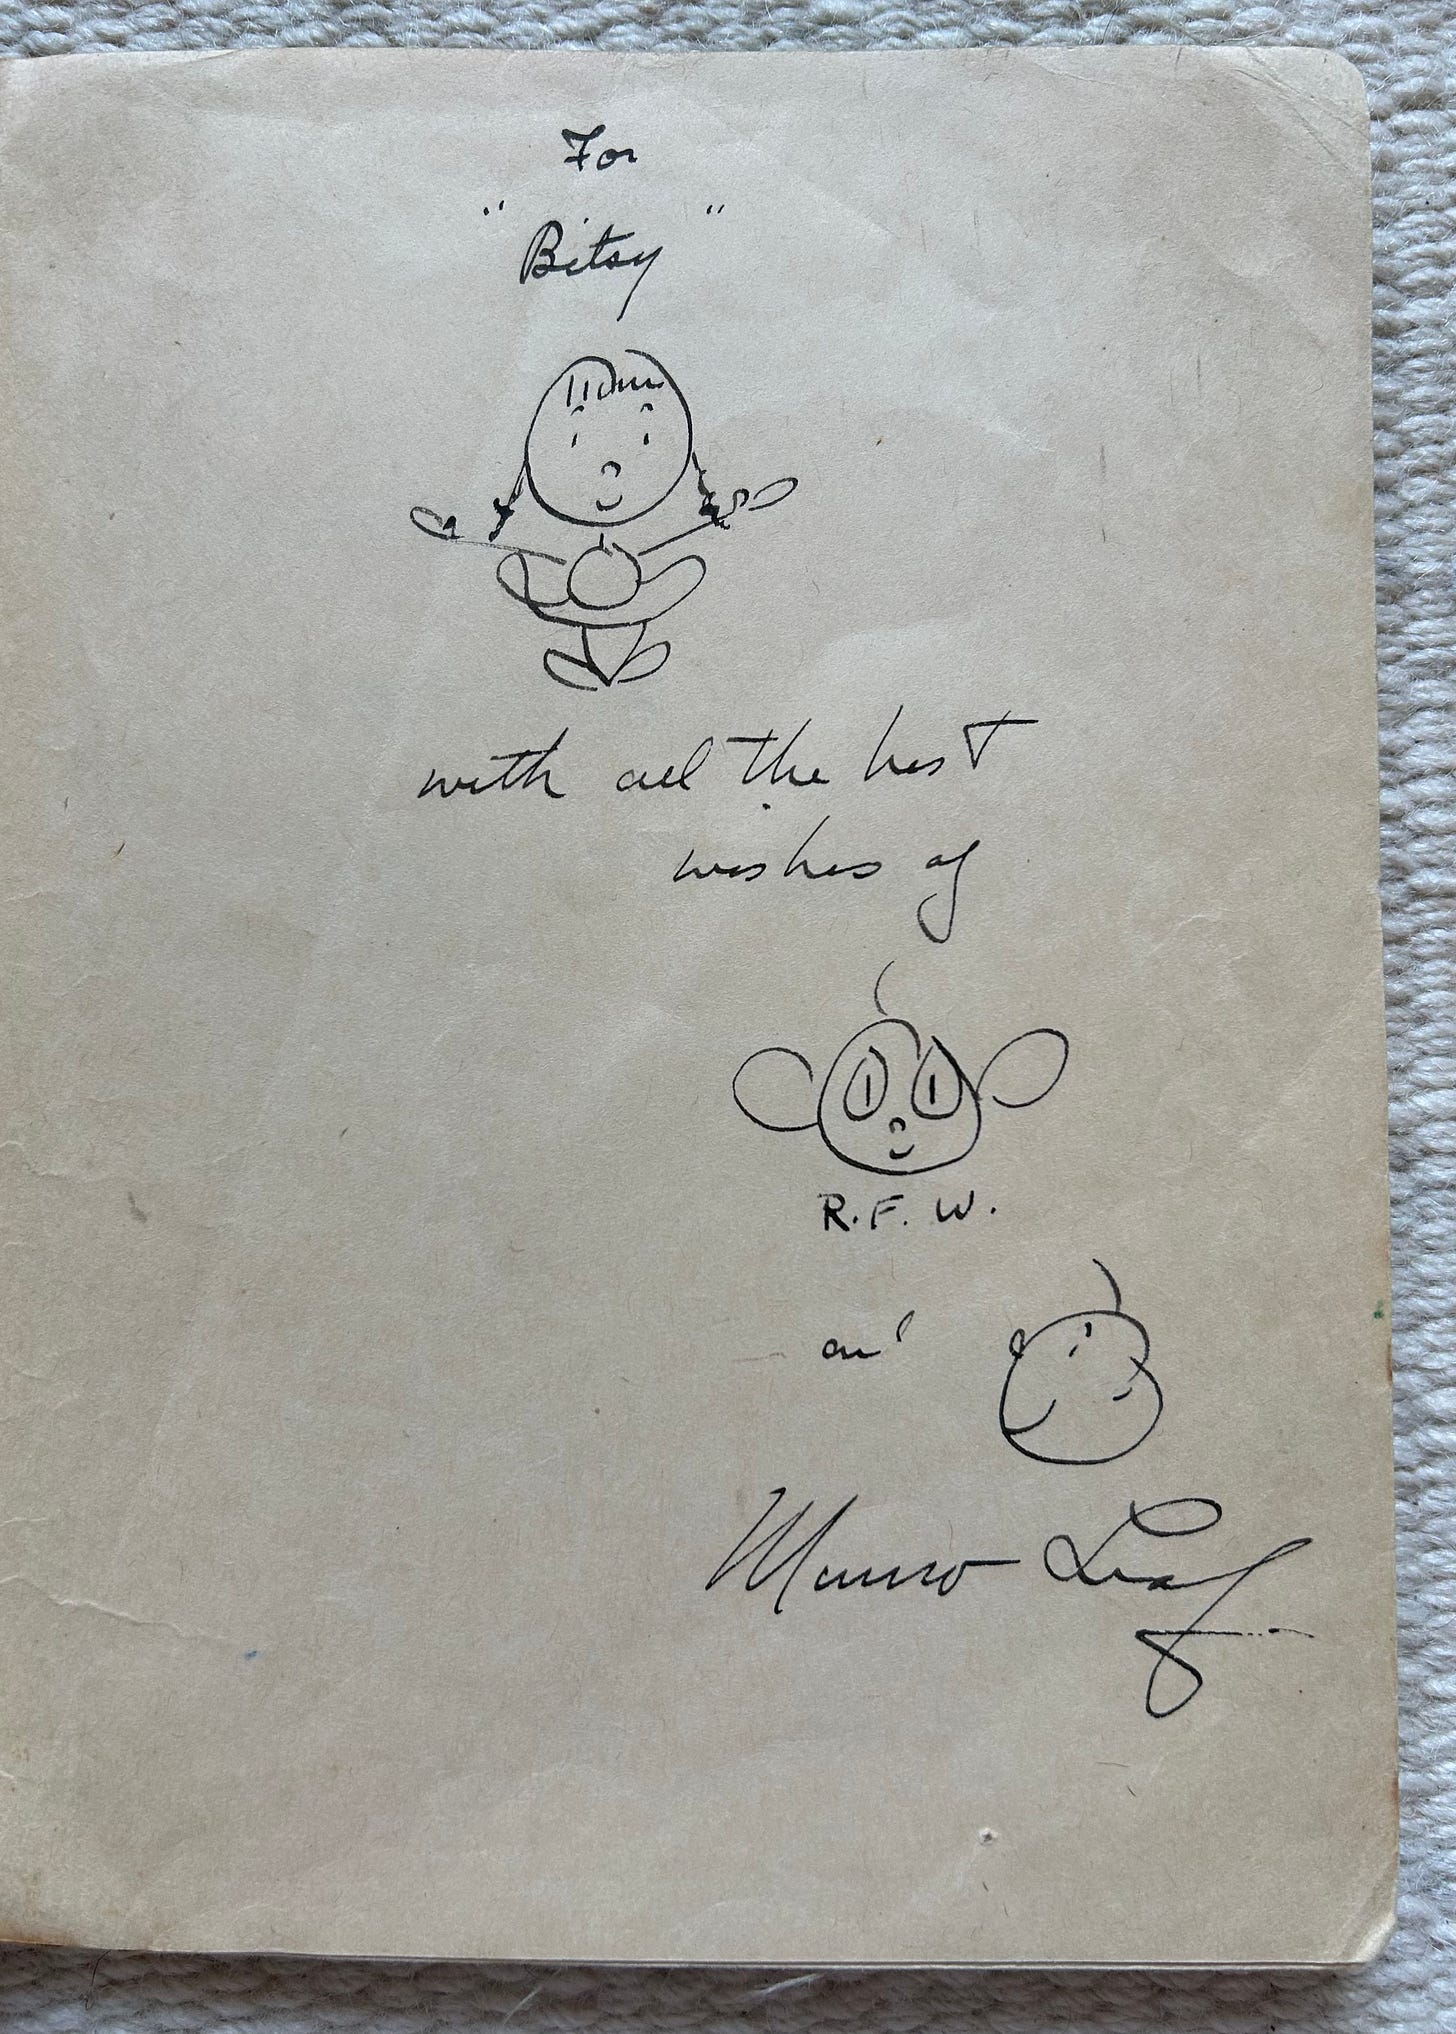 For
"Bitsy"
with all the best
wishes of
R. F. W.
an'
Munro Leaf